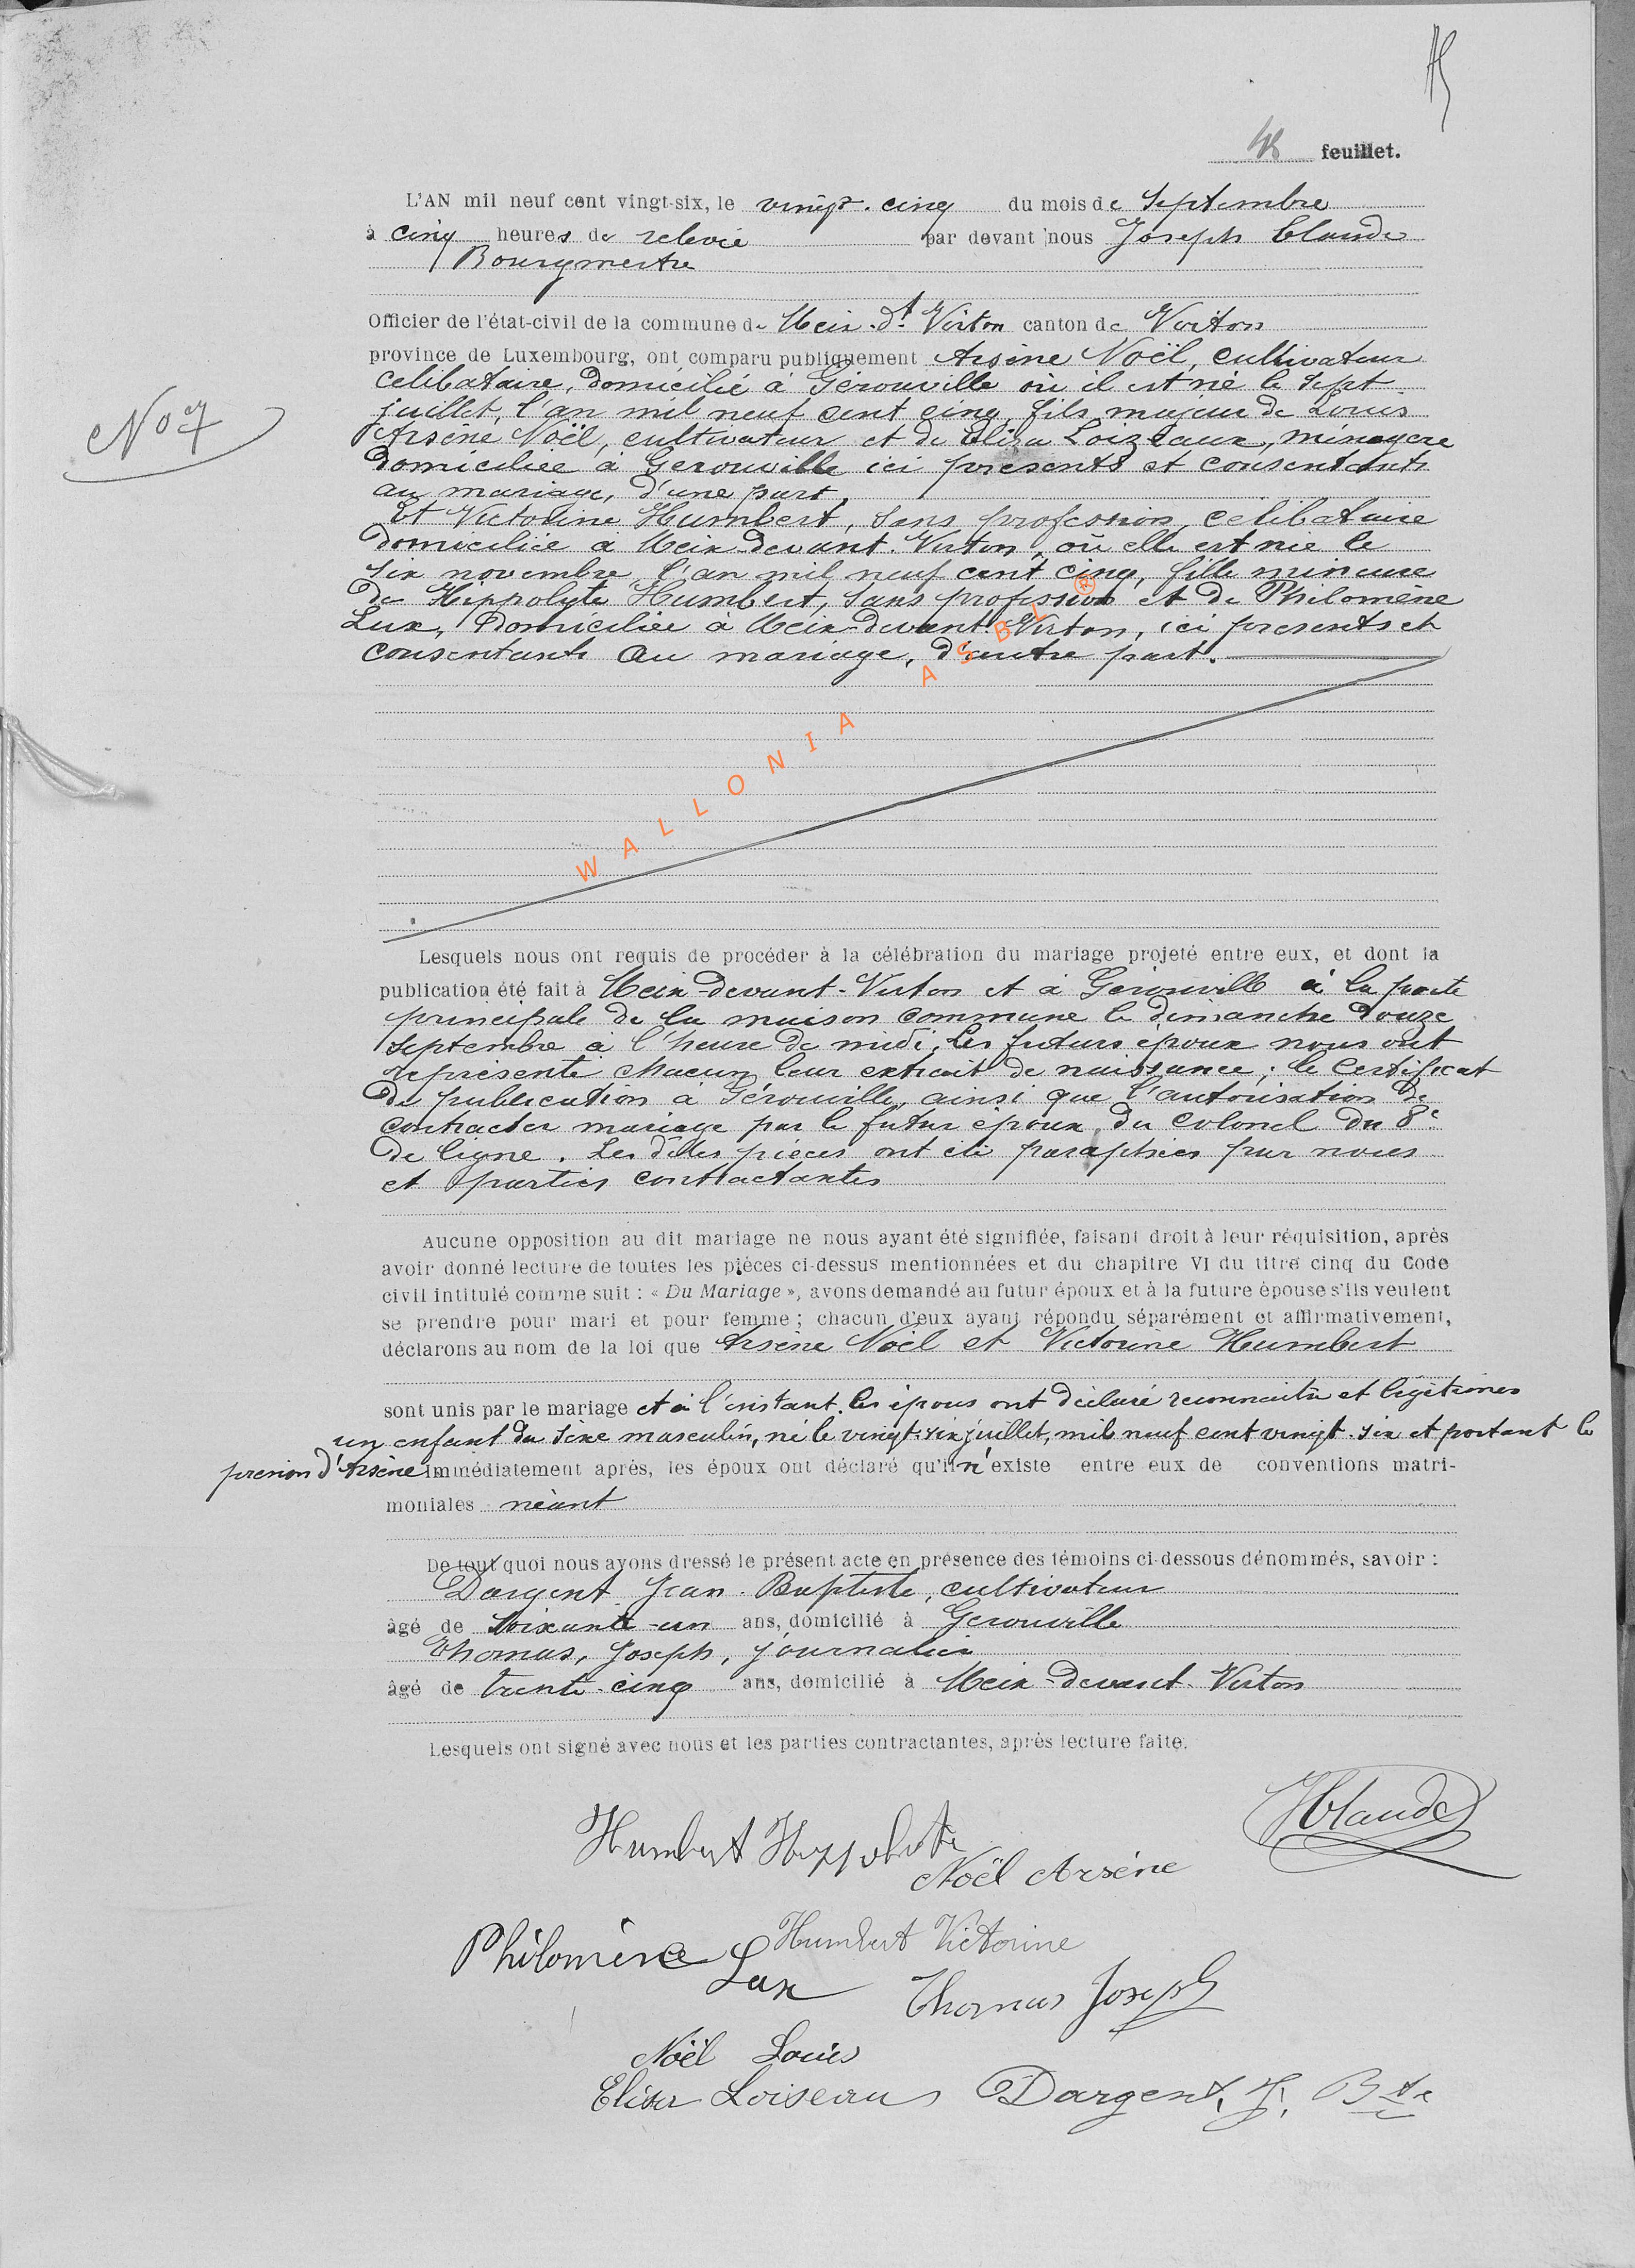 48 feuillet.
L'AN mil neuf cent vingt-six, le vingt-cinq du mois de Septembre
à cinq heures de relevée par devant nous Joseph Claude
Bourgmestre
Officier de l'état-civil de la commune de Meix-dt Virton canton de Virton
province de Luxembourg, ont comparu publiquement Arsène Noël, cultivateur
celibataire, domicilié à Gérouville où il est né le sept
juillet, l'an mil neuf cent cinq, fils majeur de Louis
Arsène Noël, cultivateur et de Eliza Loizeaux, ménagère
domiciliée à Gerouville ici présents et consentants
au mariage, d'une part,
No 7
Et Victorine Humbert, sans profession, celibataire
domiciliée à Meix-devant-Virton, où elle est née le
six novembre, l'an mil neuf cent cinq, fille mineure
de Hippolyte Humbert, sans profession et de Philomène
Lux, domiciliée à Meix-devant-Virton, ici présents et
consentants au mariage, d'autre part.
WALLONIA ASBL ®
Lesquels nous ont requis de procéder à la célébration du mariage projeté entre eux, et dont la
publication été fait à Meix-devant-Virton et à Gérouville à la porte
principale de la maison commune le dimanche douze
septembre à l'heure de midi. Les futurs époux nous ont
représenté chacun leur extrait de naissance; le certificat
de publication à Gérouville, ainsi que l'autorisation de
contracter mariage par le futur époux, du colonel du 8e
de ligne. Les dites pièces ont été paraphées par nous
et parties contractantes
Aucune opposition au dit mariage ne nous ayant été signifiée, faisant droit à leur réquisition, après
avoir donné lecture de toutes les pièces ci-dessus mentionnées et du chapitre VI du titre cinq du Code
civil intitulé comme suit : « Du Mariage », avons demandé au futur époux et à la future épouse s'ils veulent
se prendre pour mari et pour femme ; chacun d'eux ayant répondu séparément et affirmativement,
déclarons au nom de la loi que Arsène Noël et Victorine Humbert
sont unis par le mariage et à l'instant les époux ont déclaré reconnaitre et légitimer
un enfant du sexe masculin, né le vingt-six juillet, mil neuf cent vingt-six et portant le
prenom d'Arsène immédiatement après, les époux ont déclaré qu'il n'existe entre eux de conventions matri-
moniales néant
De tout quoi nous avons dressé le présent acte en présence des témoins ci-dessous dénommés, savoir :
Dargent Jean-Baptiste, cultivateur
âgé de soixante-un ans, domicilié à Gerouville
Thomas, Joseph, journalier
âgé de trente-cinq ans, domicilié à Meix-devant-Virton
Lesquels ont signé avec nous et les parties contractantes, après lecture faite.
JClaude
Humbert Hyppolite
Noël Arsène
Humbert Victorine
Philomène Lux
Thomas Joseph
Noël Louis
Elisa Loiseaux Dargent, J. Bte